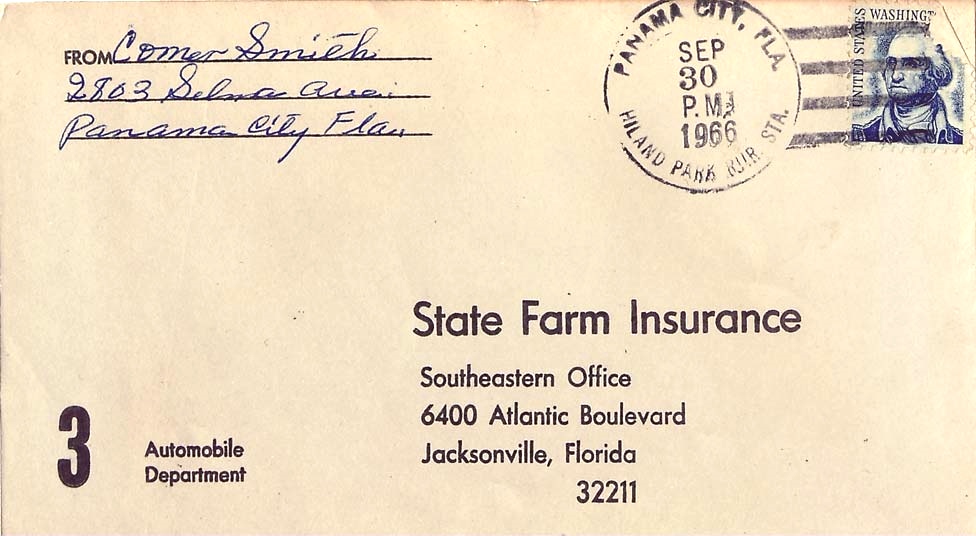 FROM Comer Smith
2803 Selma Ave.
Panama City Fla.
PANAMA CITY, FLA.
SEP
30
P.M.
1966
HILAND PARK RUR. STA.
UNITED STATES
WASHINGT
State Farm Insurance
Southeastern Office
6400 Atlantic Boulevard
Jacksonville, Florida
32211
3
Automobile
Department